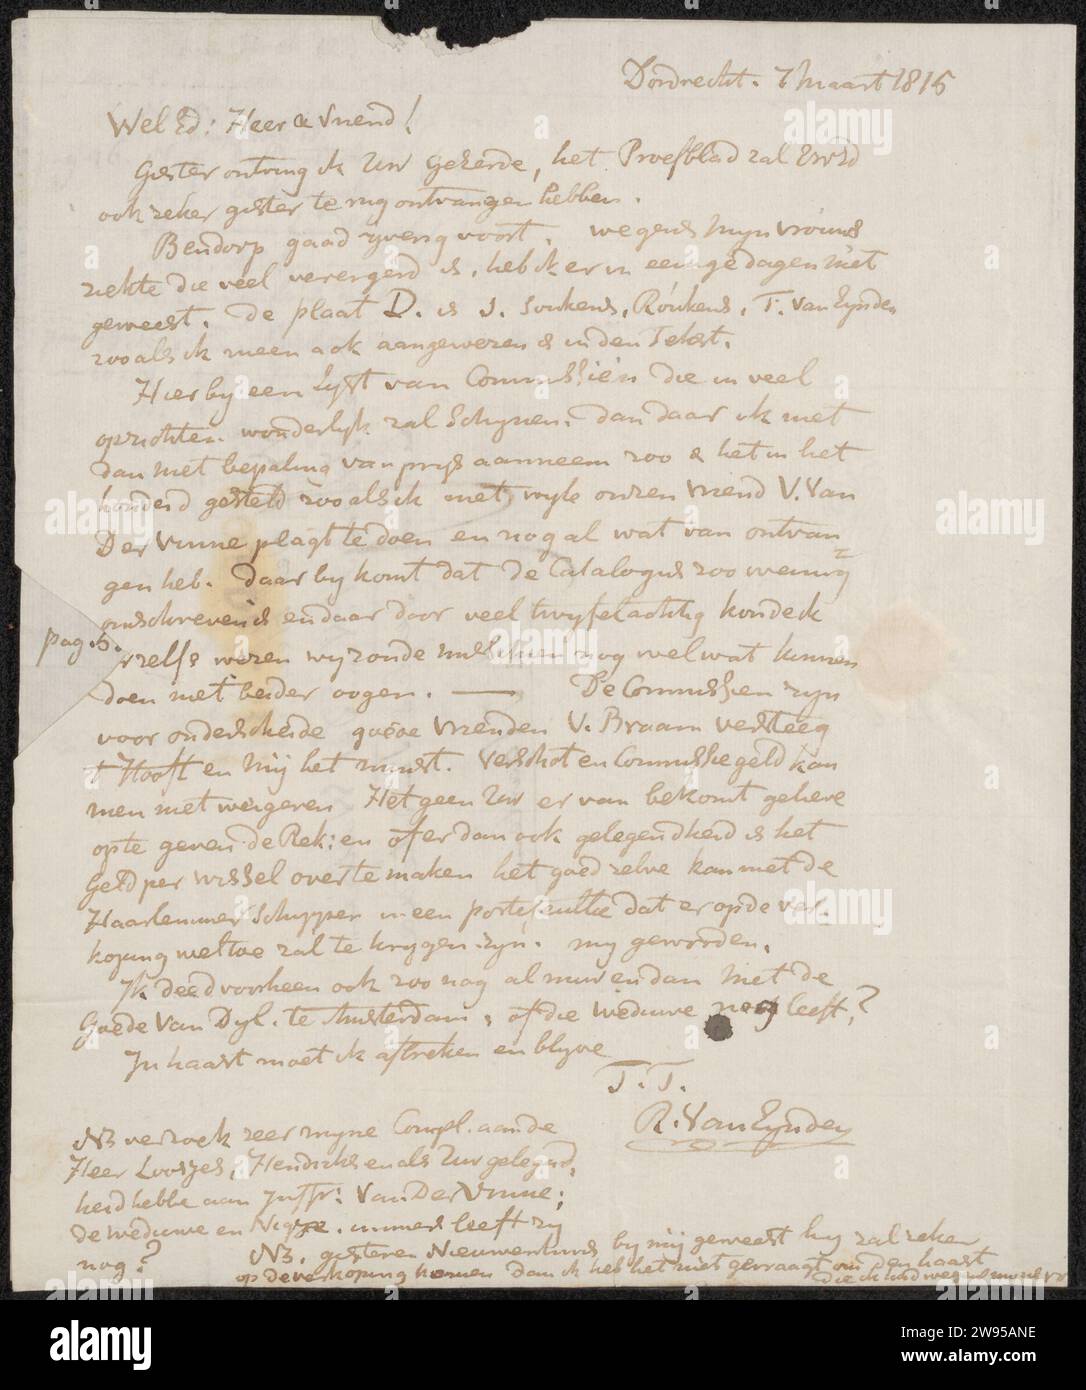 Dordrecht. 7 Maart 1815
Wel Ed: Heer & Vriend!
Gister ontving ik Uw Geëerde, het Proefblad zal UwEd
ook zeker gister te rug ontvangen hebben.
Bendorp gaad yverig voort. wegens Myn vrouws
ziekte die veel verergerd is, heb ik er in eenige dagen niet
geweest. De plaat D. is J. Sonkens, Ronkens, T. van Eynden
zoo als ik meen ook aangewezen is in den Tekst.
Hier by een Lyst van Commissiën die in veel
opzichten wonderlyk zal Schynen. dan daar ik niet
dan met bepaling van prys aanneem zoo is het in het
honderd gesteld zoo als ik met wyle onzen Vriend V. Van
Der Vinne plagt te doen en nog al wat van ontvan=
gen heb. daar by komt dat de Catalogus zoo weinig
omschreven is en daar door veel twyfelachtig
pag. 5.
zelfs wezen wy zonde misschien nog wel wat kunnen
doen met beider oogen. — De Commissien zyn
voor onderscheide goede Vrienden V. Braam Versteeg
't Hooft en My het minst. Verschot en Commissiegeld kan
men niet weigeren Het geen Uw er van bekomt gelieve
op te geven de Rek: en of er dan ook gelegendheid is het
Geld per wissel over te maken het goed zelve kan met de
Haarlemmer Schipper in een portefeullie dat er op de ver-
koping wel toe zal te krygen zyn. my geworden.
Ik deed voorheen ook zoo nog al nu en dan met de
Goede Van Dyl. te Amsterdam, of die weduwe nog leeft,?
In haast moet ik aftreken en blyve
T. T.
R. Van Eynden
NB verzoek zeer myne Compl. aan de
Heer Loosjes, Hendriks en als Uw gelegend,
heid hebbe aan Juffr: Van Der Vinne;
de weduwe en immers leeft zy
nog?
NB. gisteren Nieuwenhuis by mij geweest hy zal zeker
op de verkoping komen dan ik heb het niet gevraagt om den haast
die ik had
alamy
Image ID: 2W95ANE
www.alamy.com